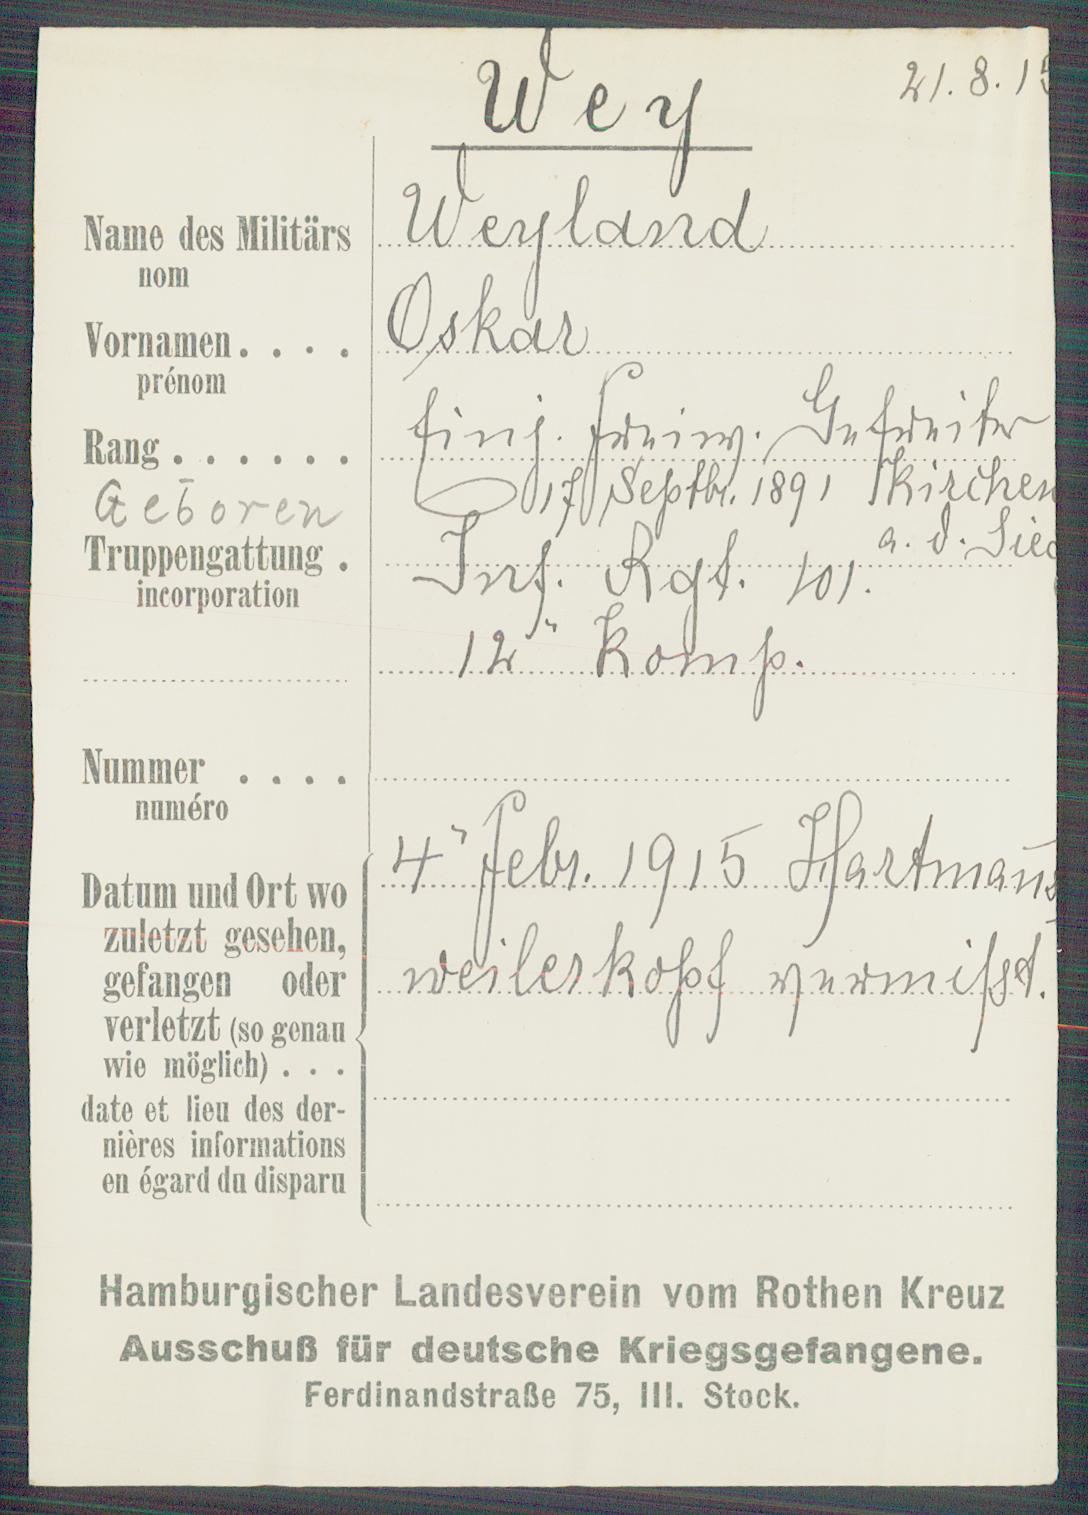 Wey
21.8.15
Name des Militärs Weyland
nom
Vornamen.... Oskar
prénom
Rang...... Einj. Freiw. Gefreiter
Geboren 17 Septbr. 1891 Kirchen
a. d. Sieg
Truppengattung . Inf. Rgt. 101.
incorporation
12" Komp.
Nummer ....
numéro
Datum und Ort wo 4" Febr. 1915 Hartmanns
zuletzt gesehen,
gefangen oder weilerkopf vermißt.
verletzt (so genau
wie möglich) ...
date et lieu des der-
nières informations
en égard du disparu
Hamburgischer Landesverein vom Rothen Kreuz
Ausschuß für deutsche Kriegsgefangene.
Ferdinandstraße 75, III. Stock.